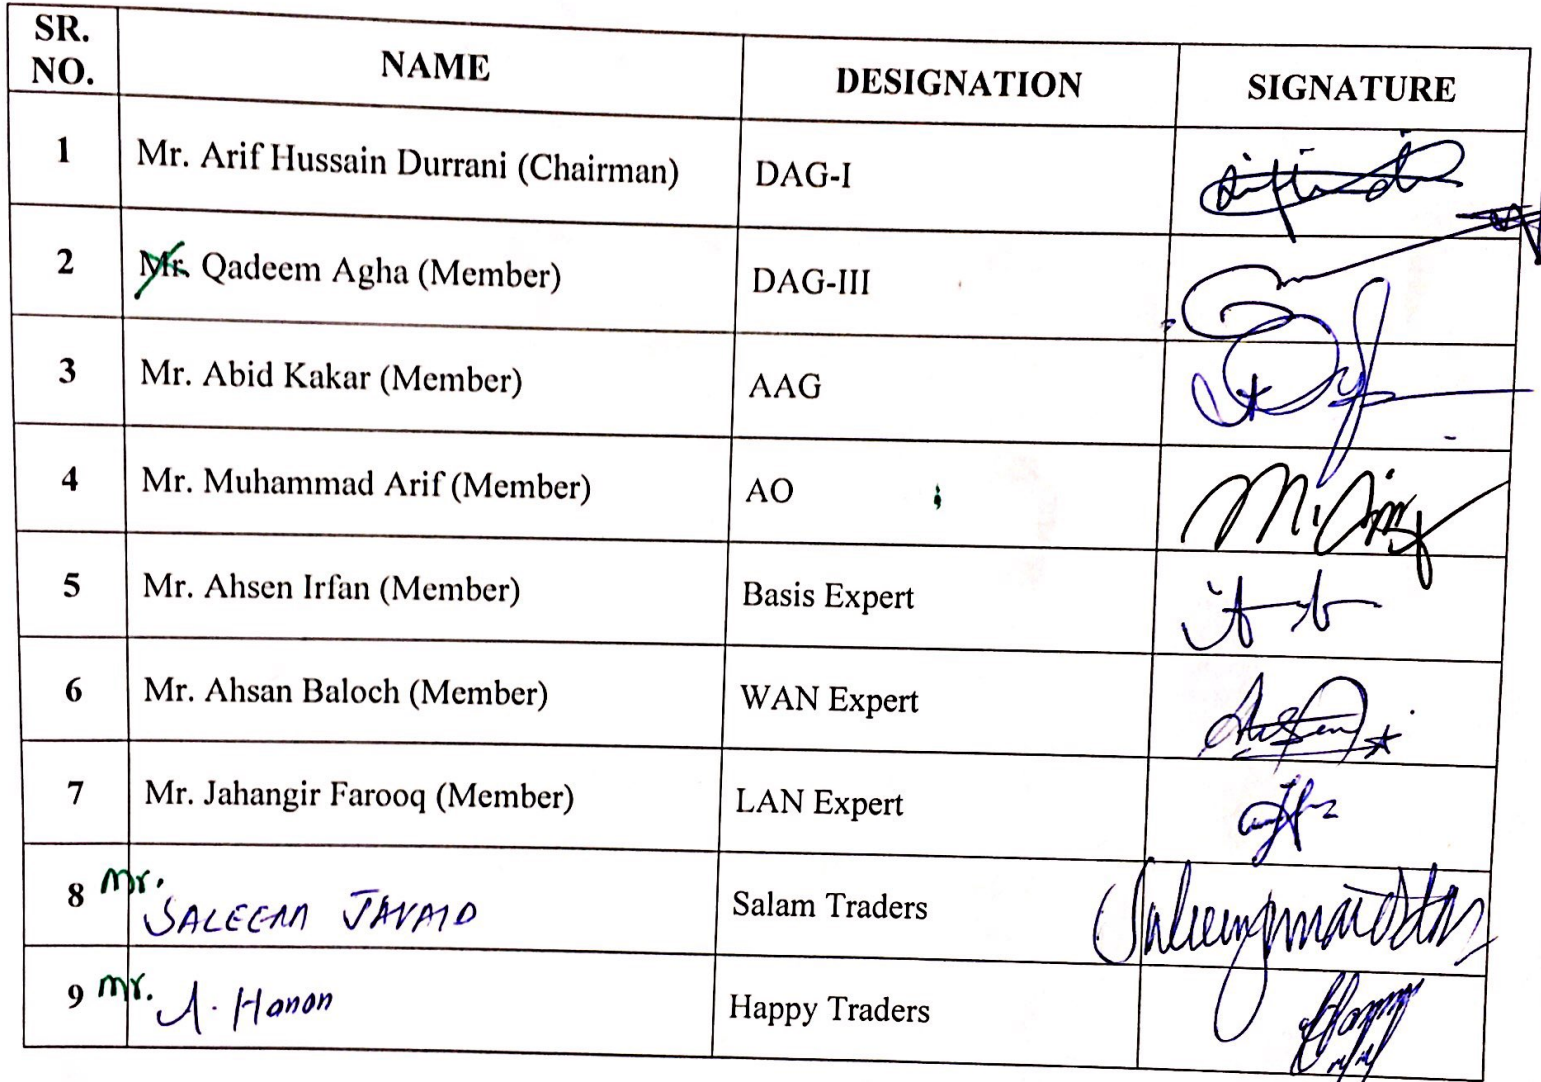 SR. NO. NAME DESIGNATION SIGNATURE
1 Mr. Arif Hussain Durrani (Chairman) DAG-I
2 Mr. Qadeem Agha (Member) DAG-III
3 Mr. Abid Kakar (Member) AAG
4 Mr. Muhammad Arif (Member) AO
5 Mr. Ahsen Irfan (Member) Basis Expert
6 Mr. Ahsan Baloch (Member) WAN Expert
7 Mr. Jahangir Farooq (Member) LAN Expert
8 Mr. SALEEM JAVAID Salam Traders
9 Mr. A. Hanon Happy Traders